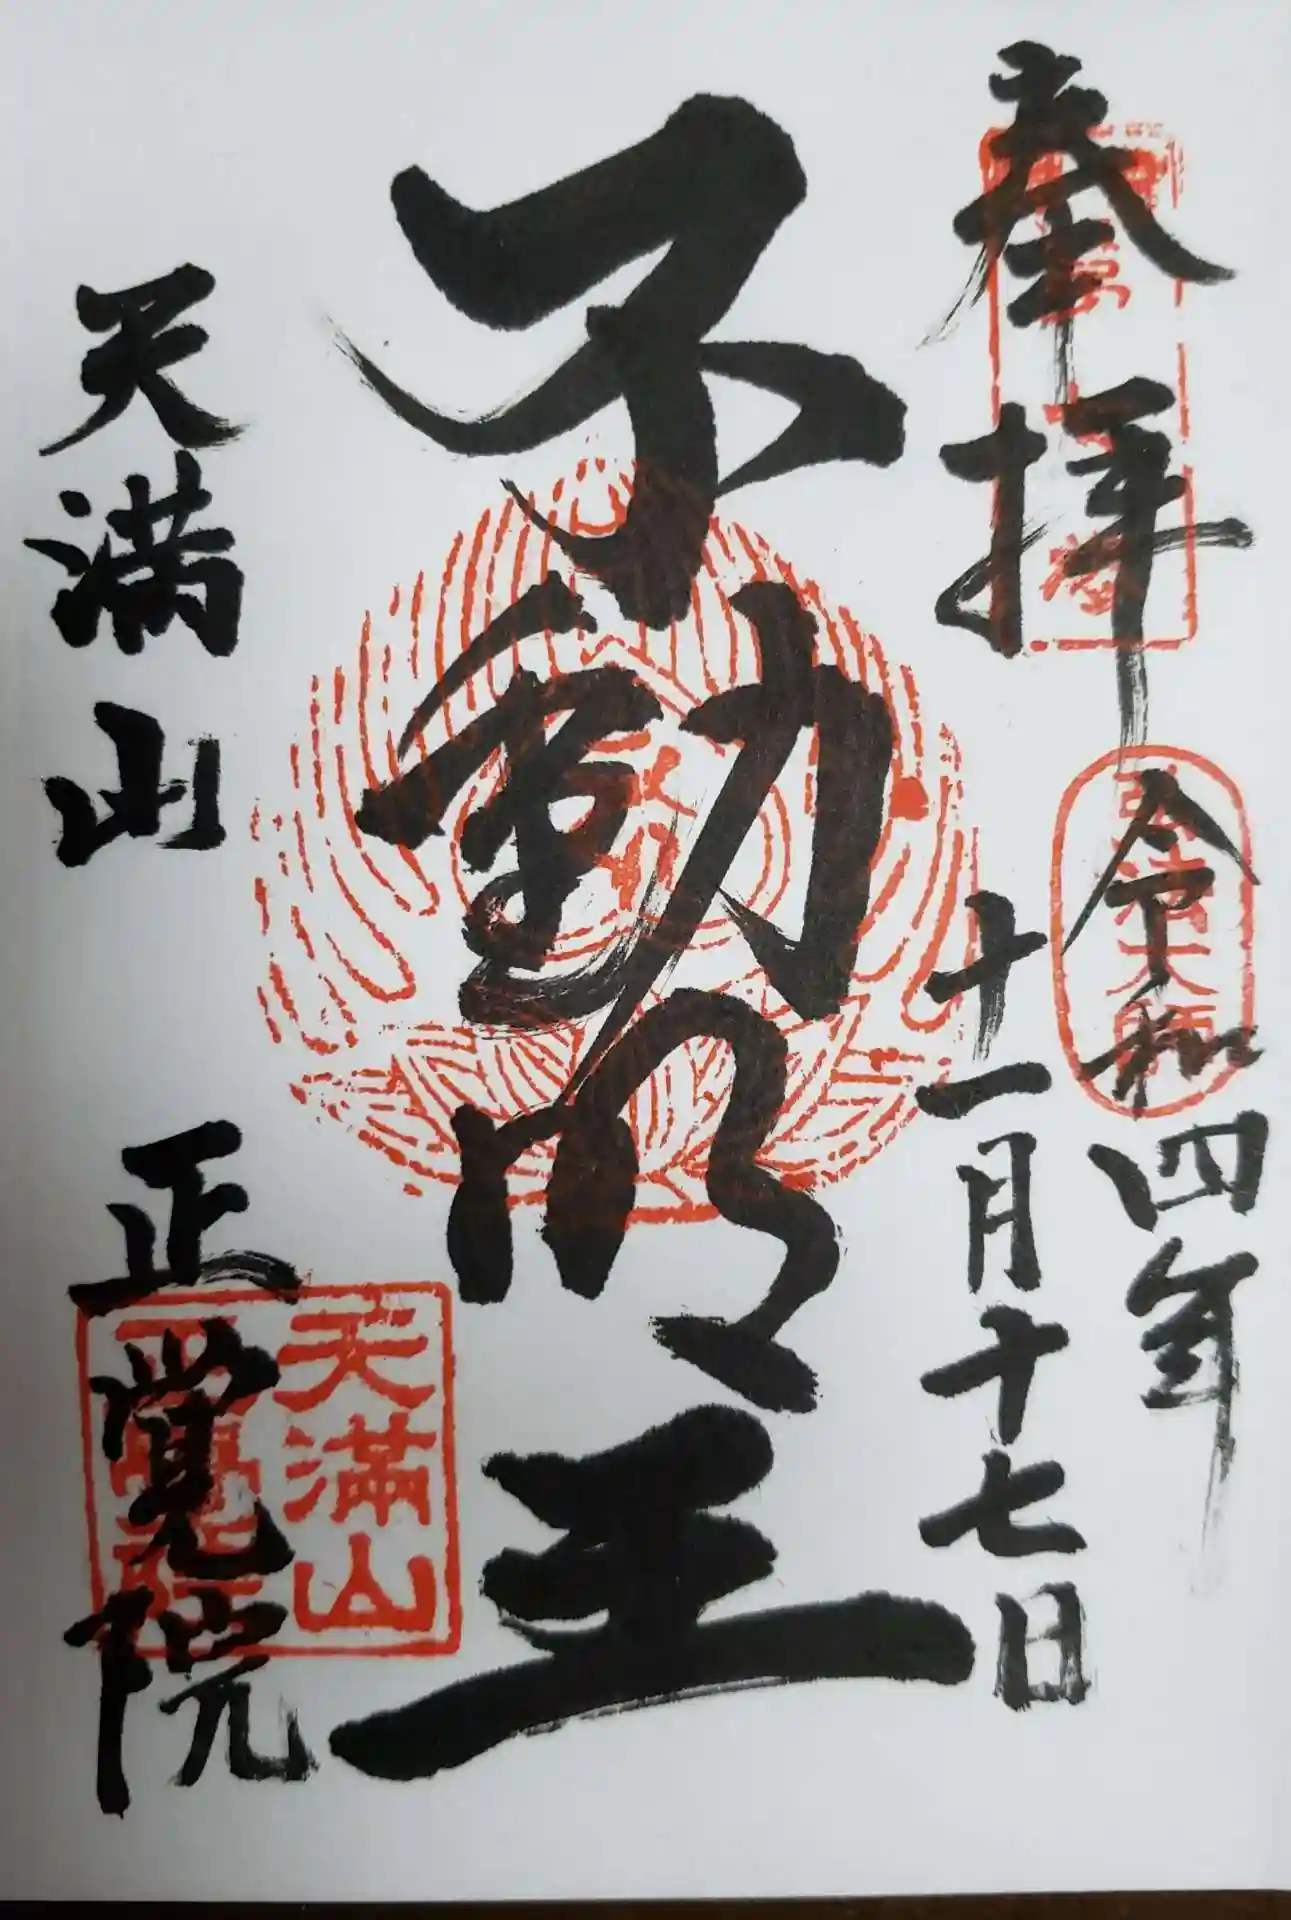 奉拝
令和四年
十一月十七日
弘法大師
不動明王
天満山 正覚院
天満山
正覚院